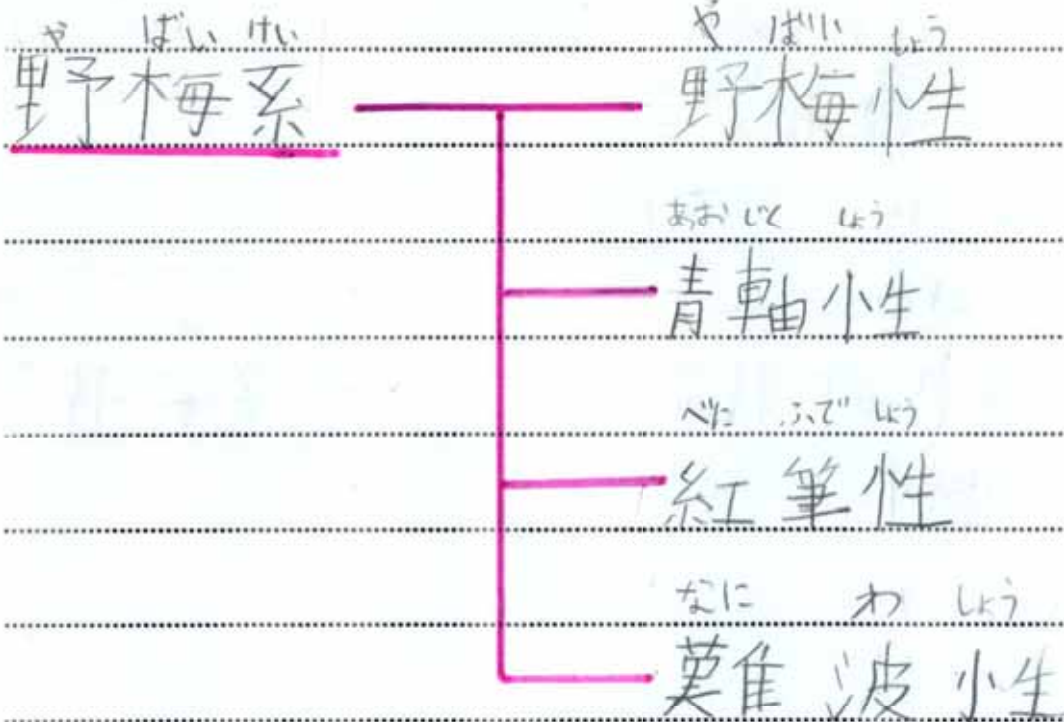 や ばい けい
野梅系
や ばい しょう
野梅性
あお じく しょう
青軸性
べに ふで しょう
紅筆性
なに わ しょう
難波性